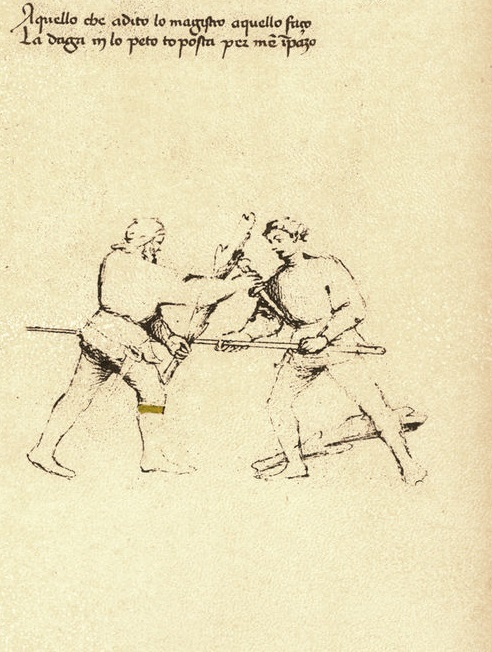 Aquello che a dito lo magistro aquello faço
La daga in lo peto to posta per mē īpaço